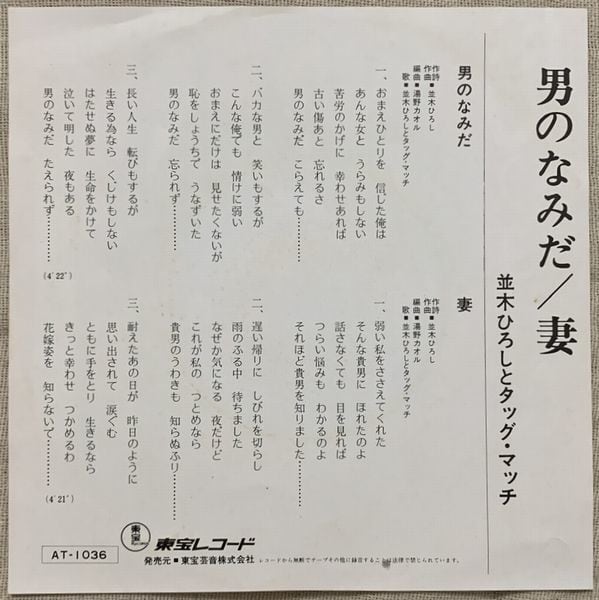 男のなみだ/妻
並木ひろしとタッグ・マッチ
男のなみだ
作詩■並木ひろし
作曲
編曲■湯野カオル
歌■並木ひろしとタッグ・マッチ
一、おまえひとりを 信じた俺は
あんな女と うらみもしない
苦労のかげに 幸わせあれば
古い傷あと 忘れるさ
男のなみだ こらえても………
二、バカな男と 笑いもするが
こんな俺でも 情けに弱い
おまえにだけは 見せたくないが
恥をしょうちで うなずいた
男のなみだ 忘られず………
三、長い人生 転びもするが
生きる為なら くじけもしない
はたせぬ夢に 生命をかけて
泣いて明した 夜もある
男のなみだ たえられず………
(4′22″)
妻
作詩■並木ひろし
作曲
編曲■湯野カオル
歌■並木ひろしとタッグ・マッチ
一、弱い私をささえてくれた
そんな貴男に ほれたのよ
話さなくても 目を見れば
つらい悩みも わかるのよ
それほど貴男を知りました………
二、遅い帰りに しびれを切らし
雨のふる中 待ちました
なぜか気になる 夜だけど
これが私の つとめなら
貴男のうわきも 知らぬふり………
三、耐えたあの日が 昨日のように
思い出されて 涙ぐむ
ともに手をとり 生きるなら
きっと幸わせ つかめるわ
花嫁姿を 知らないで………
(4′21″)
AT-1036
東宝
東宝レコード
発売元■東宝芸音株式会社
レコードから無断でテープその他に録音することは法律で禁じられています。